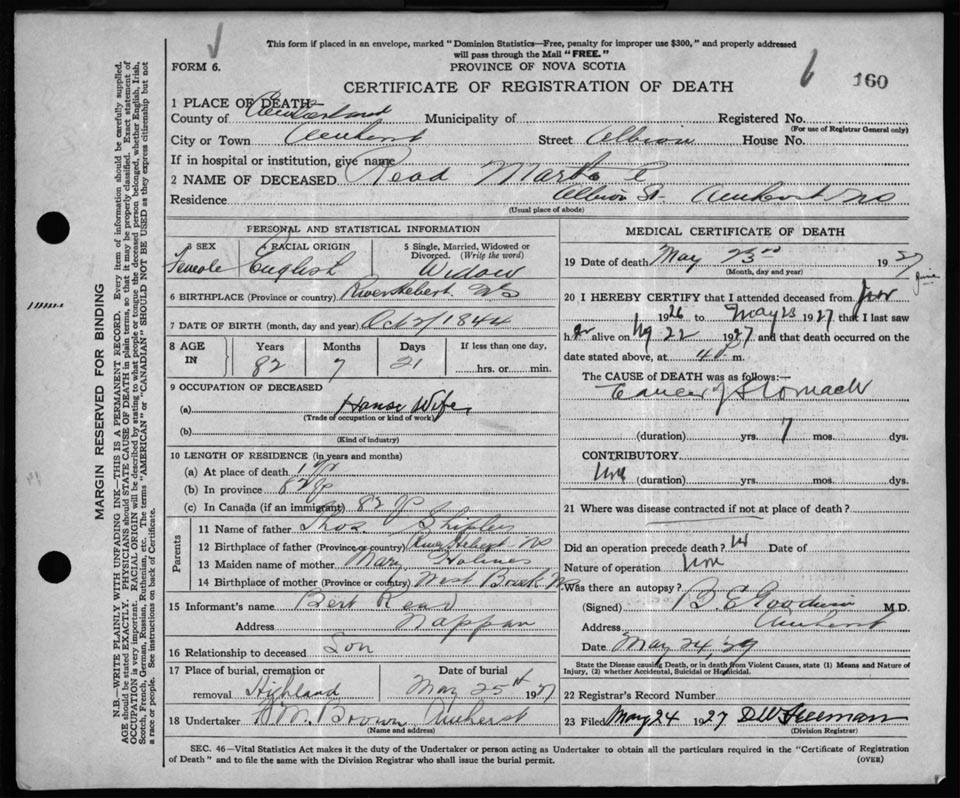 This form if placed in an envelope, marked "Dominion Statistics—Free, penalty for improper use $300," and properly addressed
will pass through the Mail "FREE."
FORM 6. PROVINCE OF NOVA SCOTIA 160
CERTIFICATE OF REGISTRATION OF DEATH
1 PLACE OF DEATH—
County of Cumberland Municipality of Registered No.
(For use of Registrar General only)
City or Town Amherst Street Albion House No.
If in hospital or institution, give name
2 NAME OF DECEASED Read Martha E
Residence Albion St. Amherst NS
(Usual place of abode)
PERSONAL AND STATISTICAL INFORMATION
3 SEX 4 RACIAL ORIGIN 5 Single, Married, Widowed or Divorced. (Write the word)
Female English Widow
6 BIRTHPLACE (Province or country) River Hebert NS
7 DATE OF BIRTH (month, day and year) Oct 2/1844
8 AGE IN Years Months Days If less than one day,
82 7 21 hrs. or min.
9 OCCUPATION OF DECEASED
(a) House Wife
(Trade of occupation or kind of work)
(b)
(Kind of industry)
10 LENGTH OF RESIDENCE (in years and months)
(a) At place of death 1 yr
(b) In province 82 y
(c) In Canada (if an immigrant) 82 y
Parents
11 Name of father Thos Shipley
12 Birthplace of father (Province or country) River Hebert NS
13 Maiden name of mother Mary Holmes
14 Birthplace of mother (Province or country) West Brook N
15 Informant's name Bert Read
Address Nappan
16 Relationship to deceased Son
17 Place of burial, cremation or removal Highland Date of burial May 25th 1927
18 Undertaker Brown Amherst
(Name and address)
MEDICAL CERTIFICATE OF DEATH
19 Date of death May 23rd 1927
(Month, day and year)
20 I HEREBY CERTIFY that I attended deceased from June
Nov 1926 to May 23 1927 that I last saw
her alive on 22 1927 and that death occurred on the
date stated above, at 4 p m.
The CAUSE OF DEATH was as follows:—
Cancer of Stomach
(duration) yrs. 7 mos. dys.
CONTRIBUTORY
(duration) yrs. mos. dys.
21 Where was disease contracted if not at place of death?
Did an operation precede death? Date of
Nature of operation
Was there an autopsy?
(Signed) B E Goodwin M.D.
Address Amherst
Date May 24,
State the Disease causing Death, or in death from Violent Causes, state (1) Means and Nature of
Injury, (2) whether Accidental, Suicidal or Homicidal.
22 Registrar's Record Number
23 Filed May 24 1927 D W Freeman
(Division Registrar)
SEC. 46—Vital Statistics Act makes it the duty of the Undertaker or person acting as Undertaker to obtain all the particulars required in the "Certificate of Registration
of Death" and to file the same with the Division Registrar who shall issue the burial permit. (OVER)
MARGIN RESERVED FOR BINDING
N.B.—WRITE PLAINLY WITH UNFADING INK—THIS IS A PERMANENT RECORD. Every item of information should be carefully supplied.
AGE should be stated EXACTLY. PHYSICIANS should STATE CAUSE OF DEATH in plain terms, so that it may be properly classified. Exact statement of
OCCUPATION is very important. RACIAL ORIGIN will be described by stating to what people or tongue the deceased person belonged, whether English, Irish,
Scotch, French, German, Russian, Ruthenian, etc. The terms "AMERICAN" or "CANADIAN" SHOULD NOT BE USED as they express citizenship but not
a race or people. See instructions on back of Certificate.